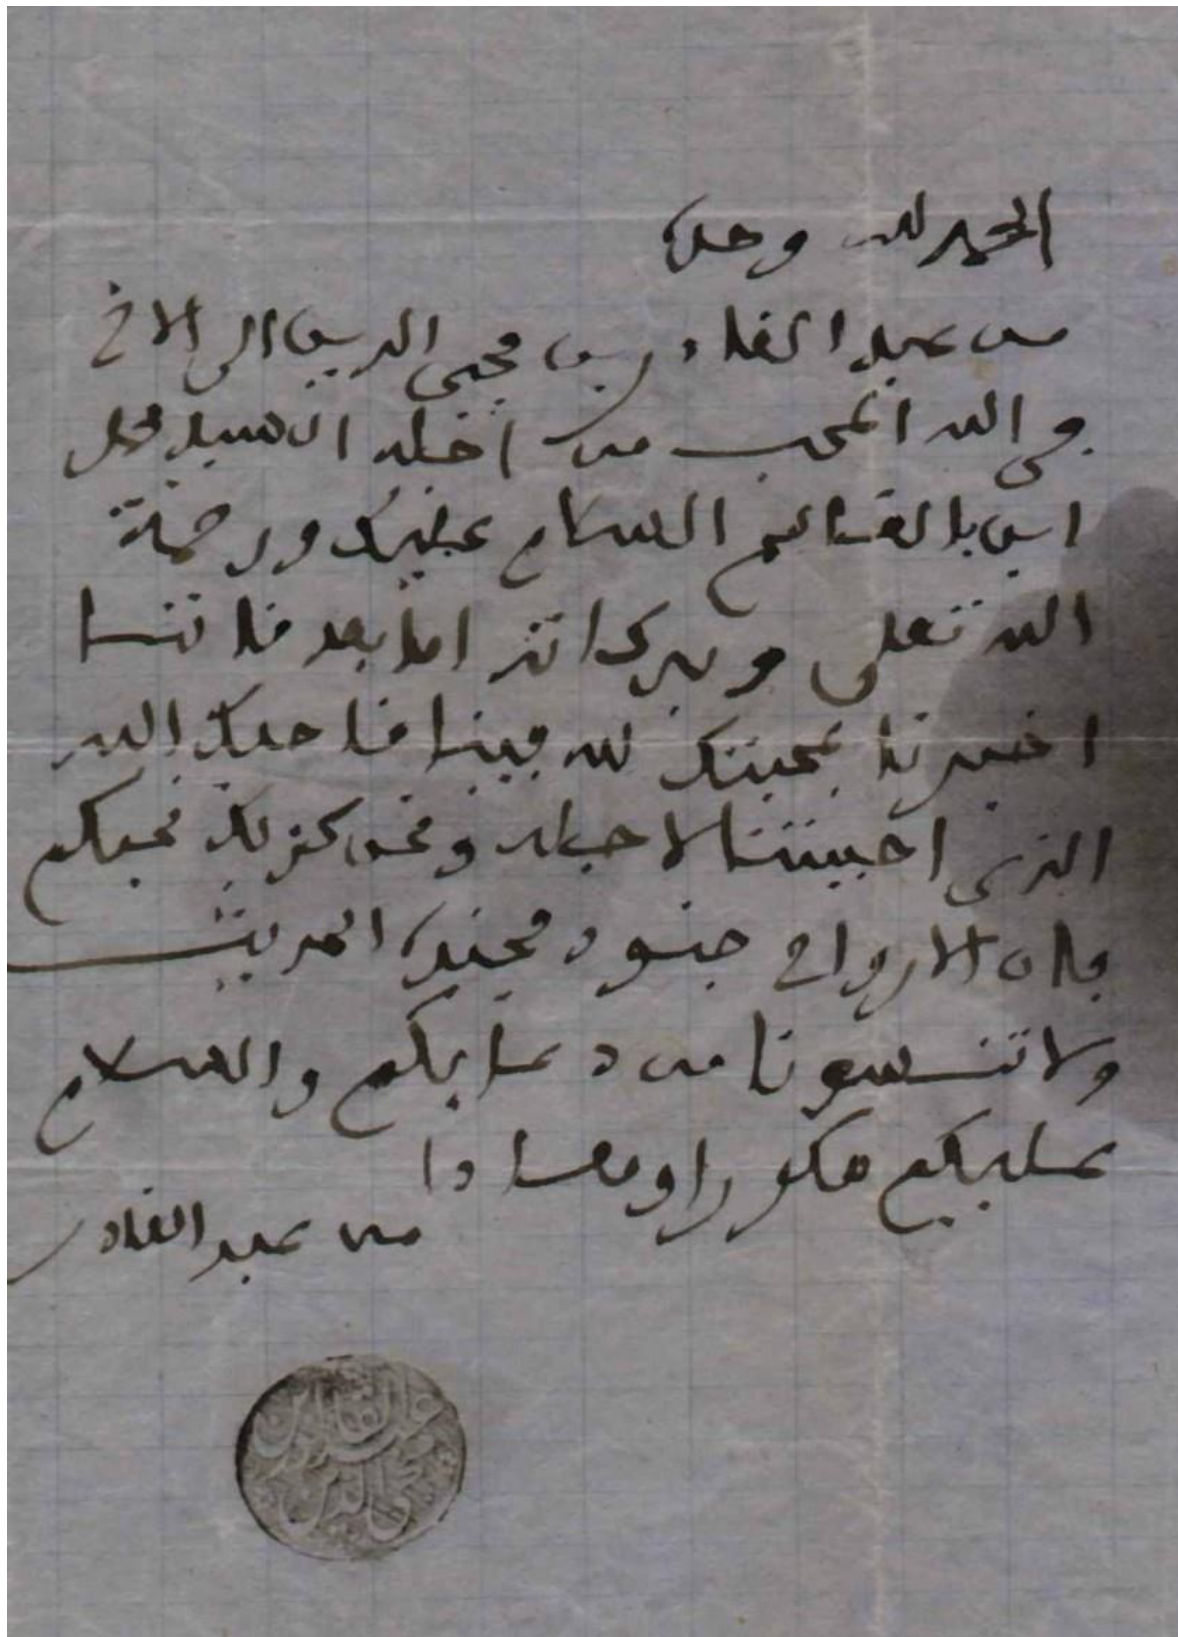 الحمد لله وحده
من عبد القادر بن محيي الدين الى الاخ
في الله المحب من اجله السيد محمد
ابن بالقاسم السلام عليك ورحمة
الله تعلى وبركاته اما بعد
اخبرنا بمحبتك لله فينا فاحبك الله
الذي احببتنا لاجله ونحن كذلك نحبكم
فان الارواح جنود مجندة الحديث
ولا تنسونا من دعايكم والسلام
عليكم
من عبد القادر
عبد القادر بن
محي الدين